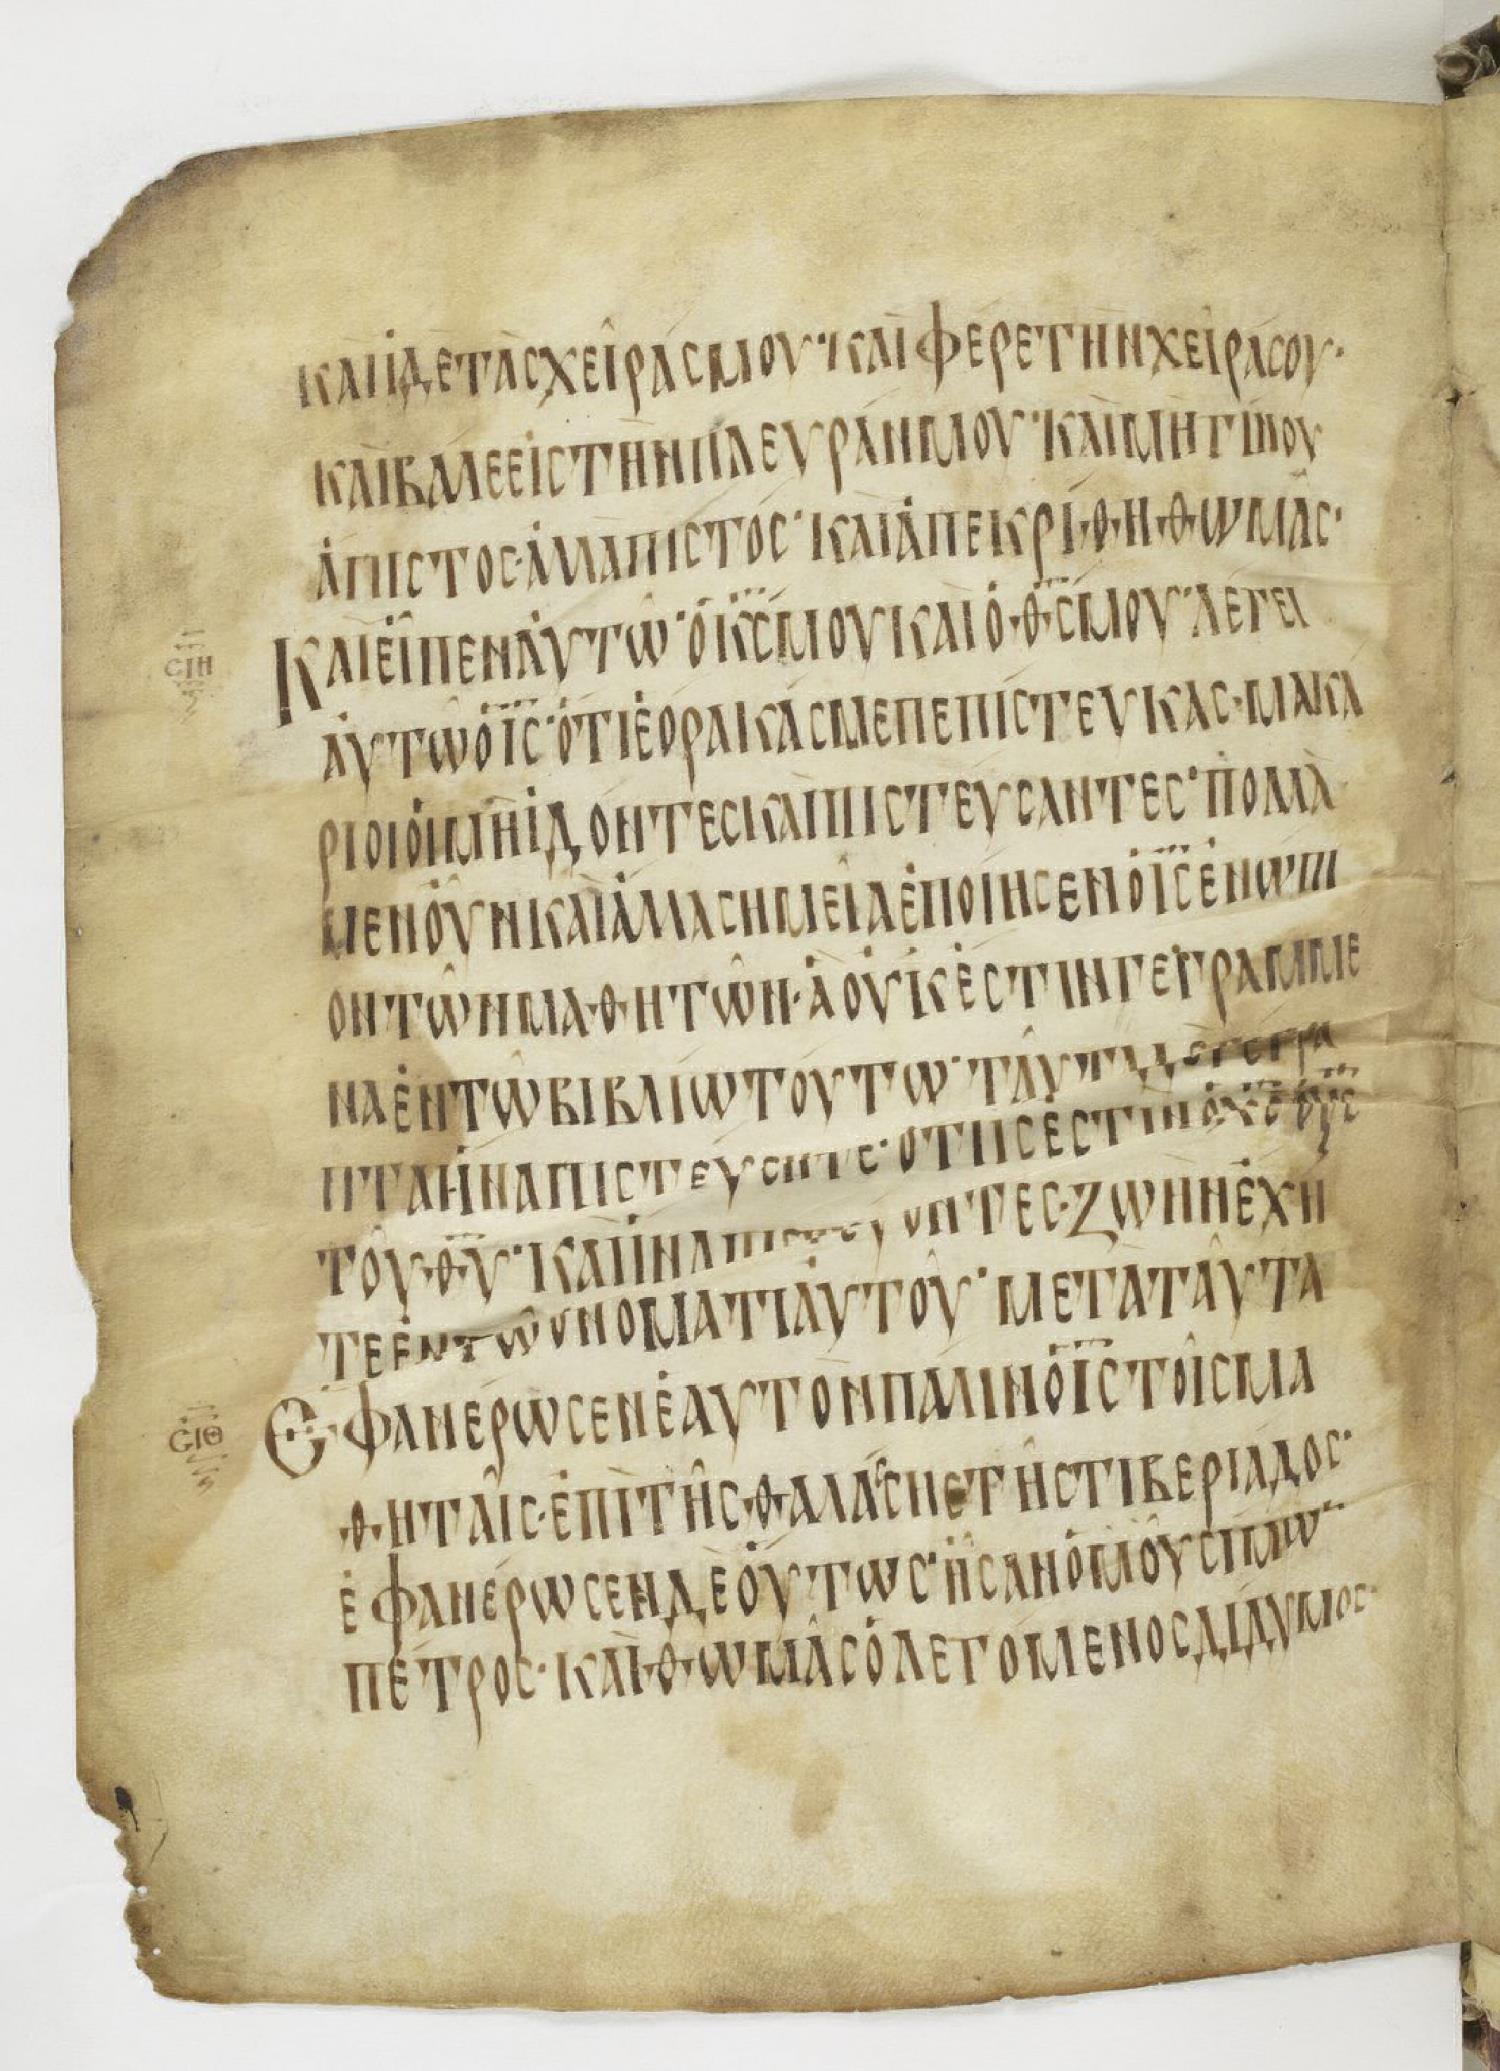 ΚΑΙΙΔΕΤΑΣΧΕΙΡΑΣΜΟΥ·ΚΑΙΦΕΡΕΤΗΝΧΕΙΡΑΣΟΥ·
ΚΑΙΒΑΛΕΕΙΣΤΗΝΠΛΕΥΡΑΝΜΟΥ·ΚΑΙΜΗΓΙΝΟΥ
ΑΠΙΣΤΟΣ·ΑΛΛΑΠΙΣΤΟΣ·ΚΑΙΑΠΕΚΡΙΘΗΘΩΜΑΣ·
ϹΙΗ
ΚΑΙΕΙΠΕΝΑΥΤΩ·ΟΚ̅Σ̅ΜΟΥΚΑΙΟΘ̅Σ̅ΜΟΥ·ΛΕΓΕΙ
ΑΥΤΩΟΙ̅Σ̅·ΟΤΙΕΟΡΑΚΑΣΜΕΠΕΠΙΣΤΕΥΚΑΣ·ΜΑΚΑ
ΡΙΟΙΟΙΜΗΙΔΟΝΤΕΣΚΑΙΠΙΣΤΕΥΣΑΝΤΕΣ·ΠΟΛΛΑ
ΜΕΝΟΥΝΚΑΙΑΛΛΑΣΗΜΕΙΑΕΠΟΙΗΣΕΝΟΙ̅Σ̅ΕΝΩΠΙ
ΟΝΤΩΝΜΑΘΗΤΩΝ·ΑΟΥΚΕΣΤΙΝΓΕΓΡΑΜΜΕ
ΝΑΕΝΤΩΒΙΒΛΙΩΤΟΥΤΩ·ΤΑΥΤΑΔΕΓΕΓΡΑ
ΠΤΑΙΙΝΑΠΙΣΤΕΥΣΗΤΕ·ΟΤΙΙΣΕΣΤΙΝΟΧ̅Σ̅ΟΥ̅Σ̅
ΤΟΥΘ̅Υ̅·ΚΑΙΙΝΑΠΙΣΤΕΥΟΝΤΕΣ·ΖΩΗΝΕΧΗ
ΤΕΕΝΤΩΟΝΟΜΑΤΙΑΥΤΟΥ·ΜΕΤΑΤΑΥΤΑ
ϹΙΘ
ΕΦΑΝΕΡΩΣΕΝΕΑΥΤΟΝΠΑΛΙΝΟΙ̅Σ̅ΤΟΙΣΜΑ
ΘΗΤΑΙΣ·ΕΠΙΤΗΣΘΑΛΑΣΣΗΣΤΗΣΤΙΒΕΡΙΑΔΟΣ·
ΕΦΑΝΕΡΩΣΕΝΔΕΟΥΤΩΣ·ΗΣΑΝΟΜΟΥΣΙΜΩ̅
ΠΕΤΡΟΣ·ΚΑΙΘΩΜΑΣΟΛΕΓΟΜΕΝΟΣΔΙΔΥΜΟΣ·